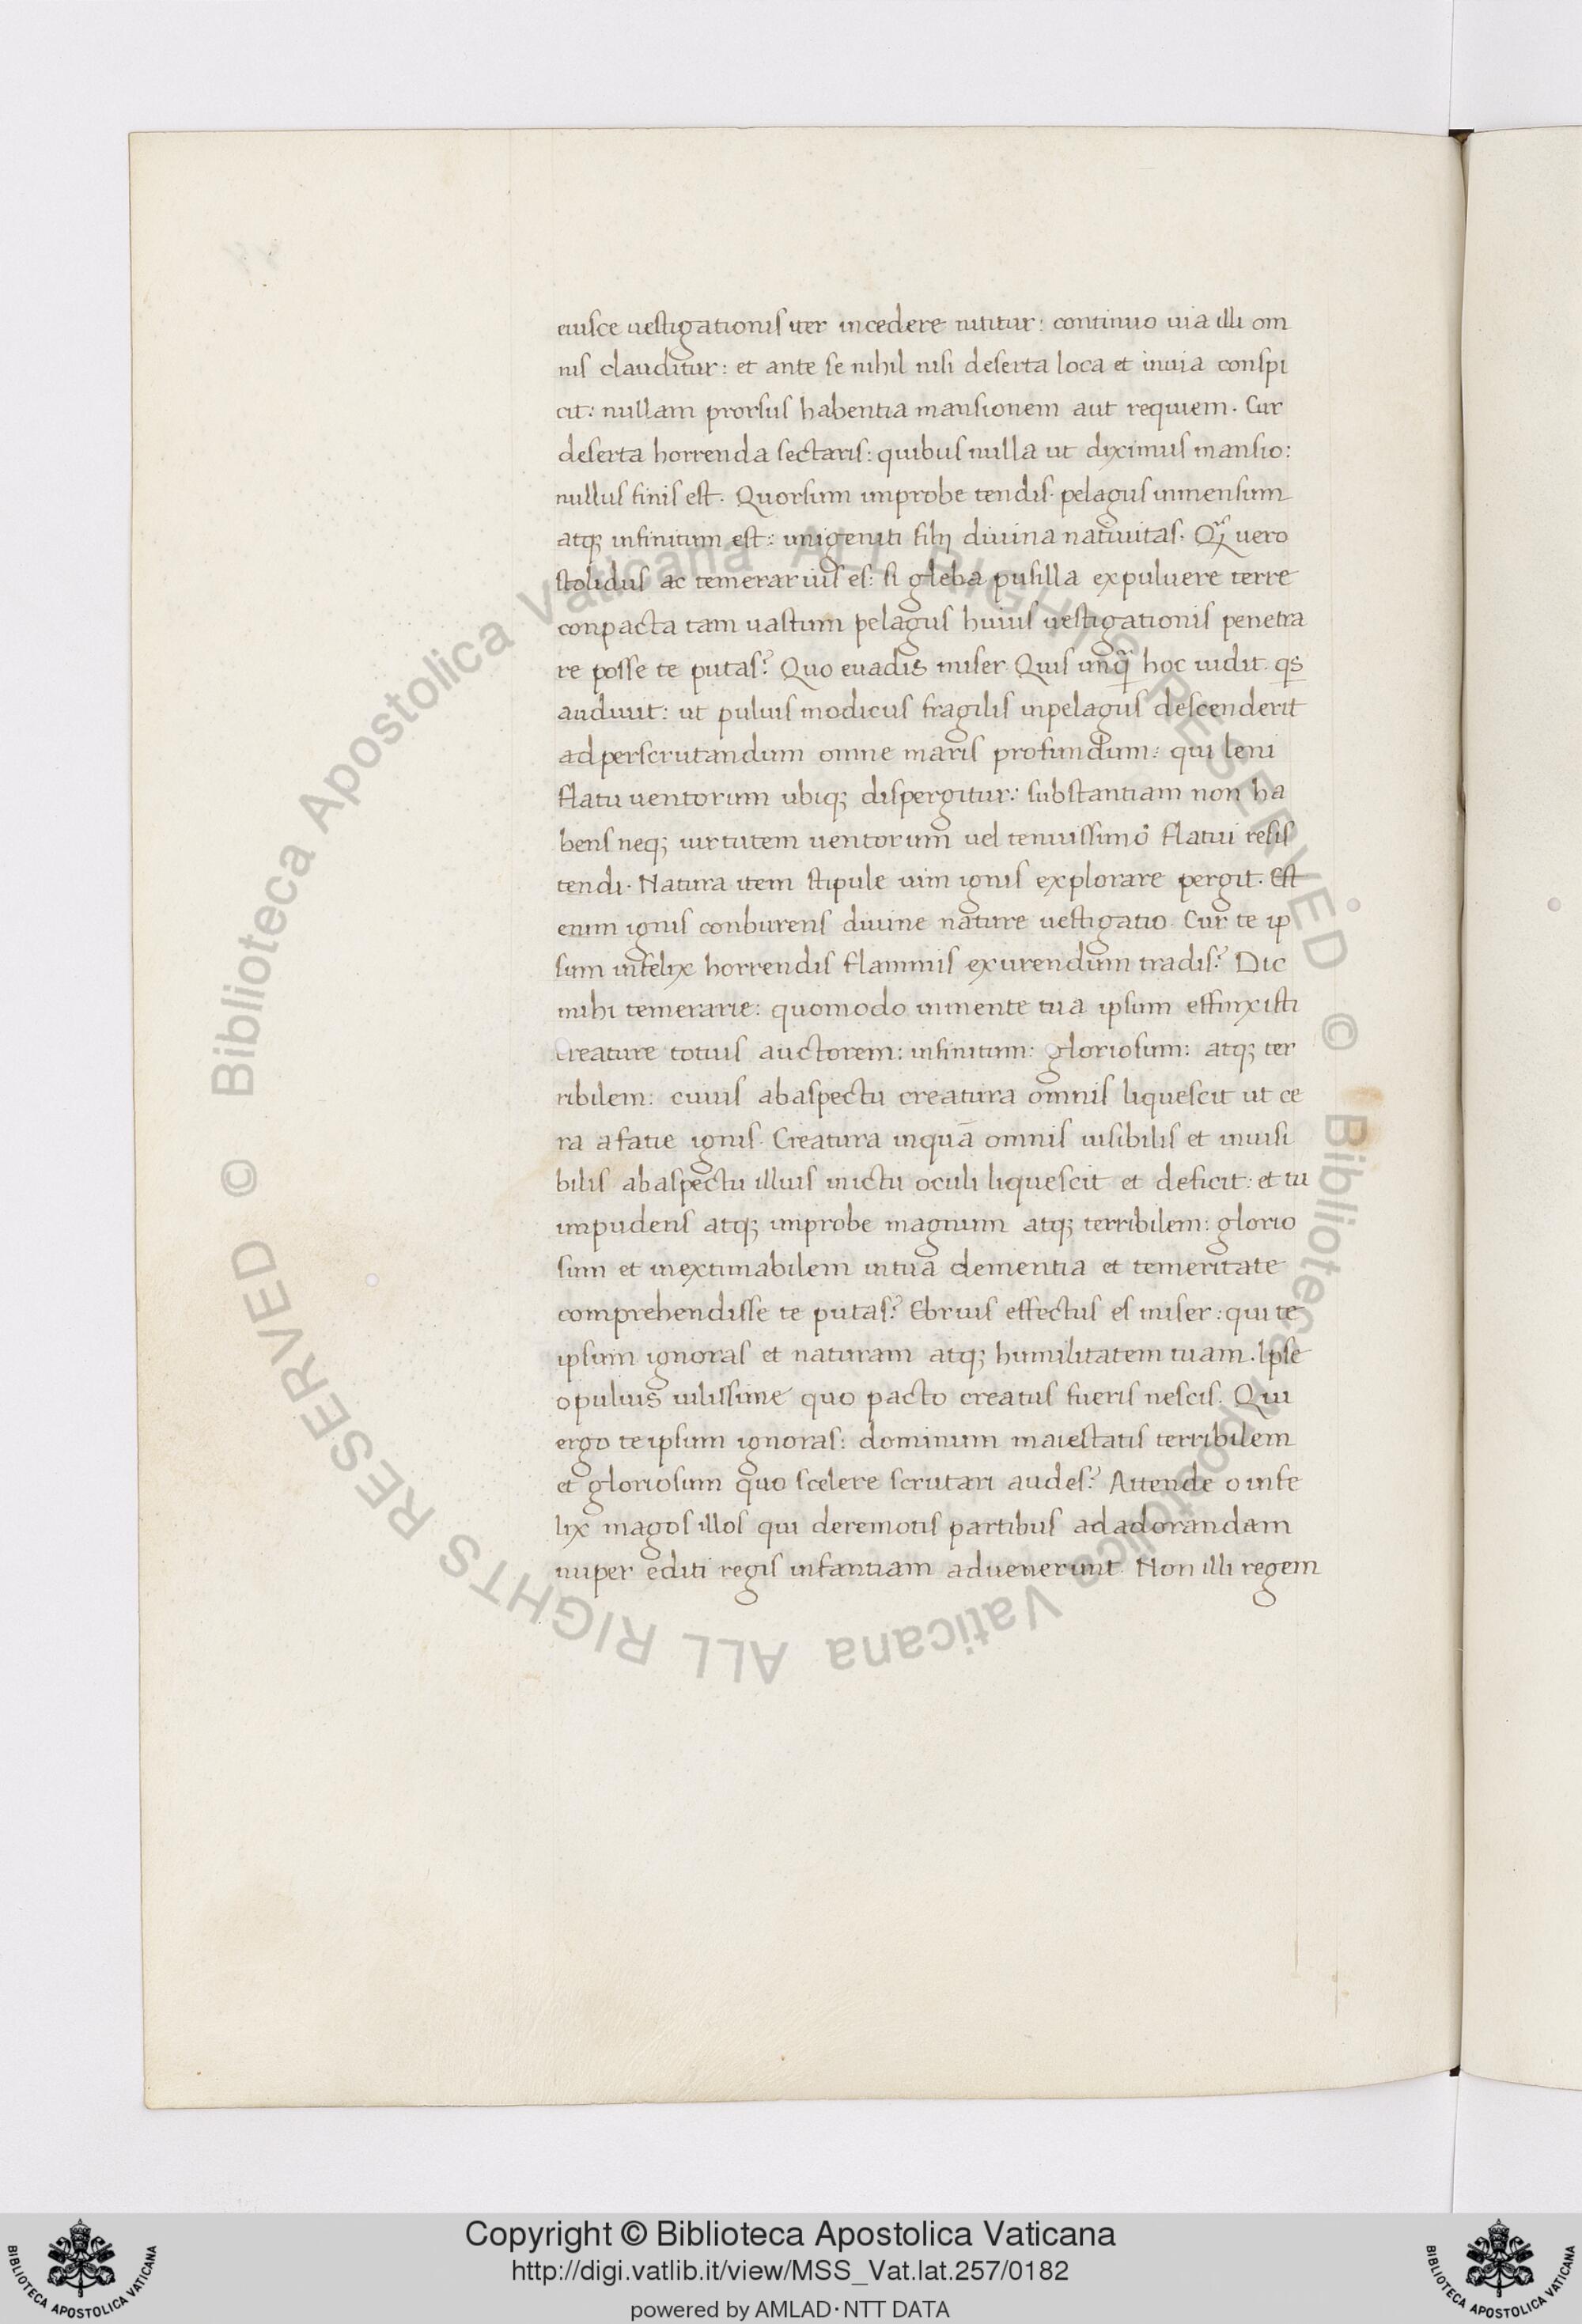 eiusce uestigationis iter incedere nititur: continuo uia illi om
nis clauditur: et ante se nihil nisi deserta loca et inuia conspi
cit: nullam prorsus habentia mansionem aut requiem. Cur
deserta horrenda sectaris: quibus nulla ut diximus mansio:
nullus finis est. Quorsum improbe tendis. pelagus inmensum
atq; infinitum est: unigeniti filij diuina natiuitas. vero
stolidus ac temerarius es: si gleba pusilla expuluere terre
conpacta tam uastum pelagus huius uestigationis penetra
re posse te putas? Quo euadis miser Quis unq̃ hoc uidit. qs
audiuit: ut puluis modicus fragilis inpelagus descenderit
adperscrutandum omne maris profundum: qui leni
flatu uentorum ubiq; dispergitur: substantiam non ha
bens neq; uirtutem uentorum uel tenuissimo flatui resis
tendi. Natura item stipule uim ignis explorare pergit. Est
enim ignis conburens diuine nature uestigatio. Cur te ip
sum infelix horrendis flammis exurendum tradis? Dic
mihi temerarie: quomodo inmente tua ipsum effinxisti
creature totius auctorem: infinitum: gloriosum: atq; ter
ribilem: cuius abaspectu creatura omnis liquescit ut ce
ra afatie ignis. Creatura inquā omnis uisibilis et inuisi
bilis abaspectu illius inictu oculi liquescit et deficit: et tu
impudens atq; improbe magnum atq; terribilem: glorio
sum et inextimabilem intua dementia et temeritate
comprehendisse te putas? Ebrius effectus es miser: qui te
ipsum ignoras et naturam atq; humilitatem tuam. Ipse
opuluis uilissime quo pacto creatus fueris nescis. Qui
ergo teipsum ignoras: dominum maiestatis terribilem
et gloriosum quo scelere scrutari audes? Attende o infe
lix magos illos qui deremotis partibus adadorandam
nuper editi regis infantiam aduenerunt. Non illi regem
© Biblioteca Apostolica Vaticana ALL RIGHTS RESERVED © Biblioteca Apostolica Vaticana ALL RIGHTS RESERVED
Copyright © Biblioteca Apostolica Vaticana
http://digi.vatlib.it/view/MSS_Vat.lat.257/0182
powered by AMLAD·NTT DATA
BIBLIOTECA APOSTOLICA VATICANA
BIBLIOTECA APOSTOLICA VATICANA